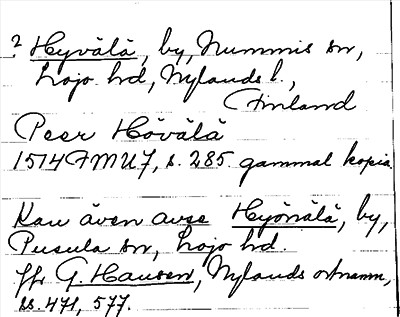 ? Hyvälä, by, Nummis sn,
Lojo hd, Nylands l.,
Finland
Peer Hövälä
1514 FMU 7, s. 285. gammal kopia.
Kan även avse Hyönälä, by,
Pusula sn, Lojo hd.
Jfr G. Hausen, Nylands ortnamn,
ss. 471, 577.